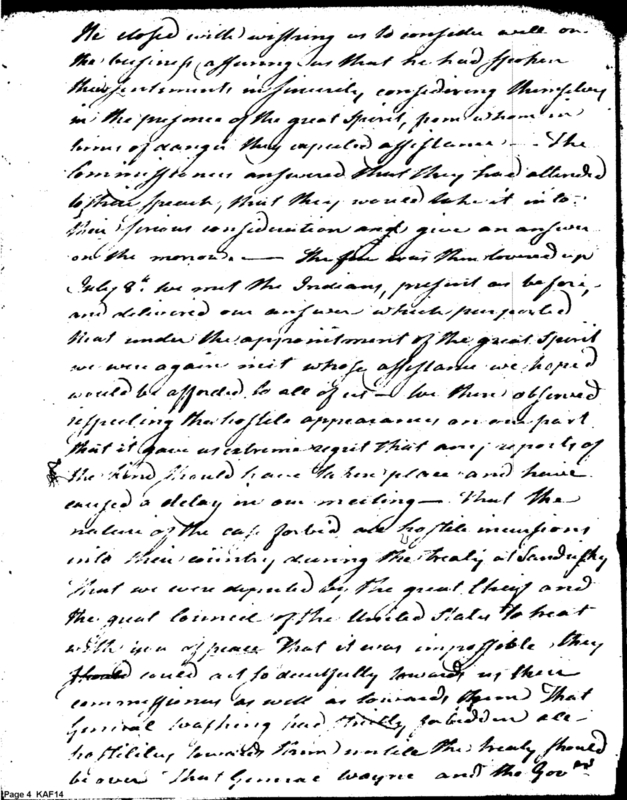 He closed with wishing us to consider well on
the business, assuring us that he had spoken
their sentiments in sincerity, considering themselves
in the presence of the great Spirit, from whom in
times of danger they expected assistance — The
Commissioners answered that they had attended
to their speech, that they would take it into
their serious consideration and give an answer
on the morrow — The fire was then covered up
July 8th. we met the Indians, present as before,
and delivered our answer which purported
that under the appointment of the great Spirit
we were again met whose assistance we hoped
would be afforded to all of us — We then observed
respecting the hostile appearances on our part
that it gave us extreme regret that any reports of
the kind should have taken place and have
caused a delay in our meeting — That the
nature of the case forbid all hostile incursions
into their country during the treaty at Sandusky
That we were deputed by the great Chief and
the great Council of the United States to treat
with you of peace That it was impossible they
should could act so deceitfully towards us their
commissioners as well as towards them That
General Washing had forbidden all
hostilities towards them untill the treaty should
be over That General Wayne and the Govrs
Page 4 KAF14